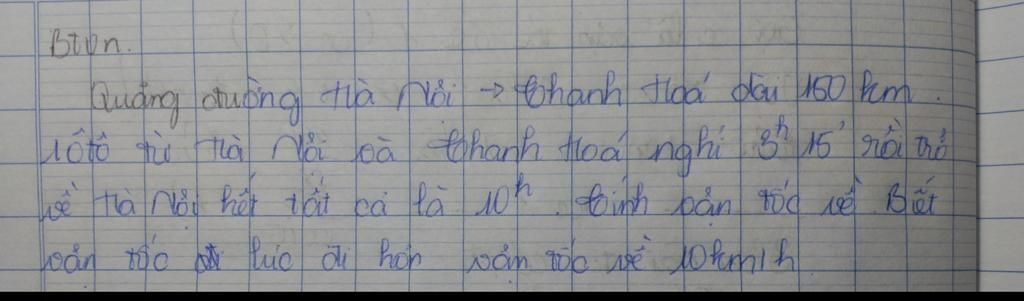 Btvn.
Quãng đường Hà Nội → Thanh Hoá dài 150 km.
1 ôtô từ Hà Nội và Thanh Hoá nghỉ 3h 15' rồi trở
về Hà Nội hết tất cả là 10h. Tính vận tốc về Biết
vận tốc lúc đi hơn vận tốc về 10km/h